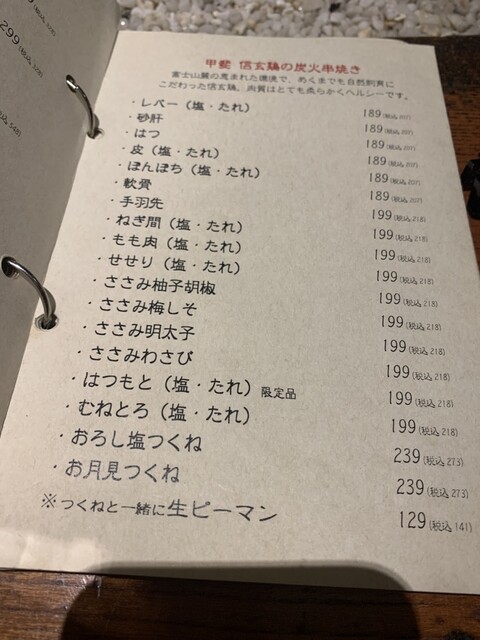 299(税込
甲斐 信玄鶏の炭火串焼き
富士山麓の恵まれた環境で、あくまでも自然飼育に
こだわった信玄鶏、肉質はとても柔らかくヘルシーです。
・レバー（塩・たれ） 189(税込 207)
・砂肝 189(税込 207)
・はつ 189(税込 207)
・皮（塩・たれ） 189(税込 207)
・ぼんぼち（塩・たれ） 189(税込 207)
・軟骨 189(税込 207)
・手羽先 199(税込 218)
・ねぎ間（塩・たれ） 199(税込 218)
・もも肉（塩・たれ） 199(税込 218)
・せせり（塩・たれ） 199(税込 218)
・ささみ柚子胡椒 199(税込 218)
・ささみ梅しそ 199(税込 218)
・ささみ明太子 199(税込 218)
・ささみわさび 199(税込 218)
・はつもと（塩・たれ）限定品 199(税込 218)
・むねとろ（塩・たれ） 199(税込 218)
・おろし塩つくね 239(税込 273)
・お月見つくね 239(税込 273)
※つくねと一緒に生ピーマン 129(税込 141)